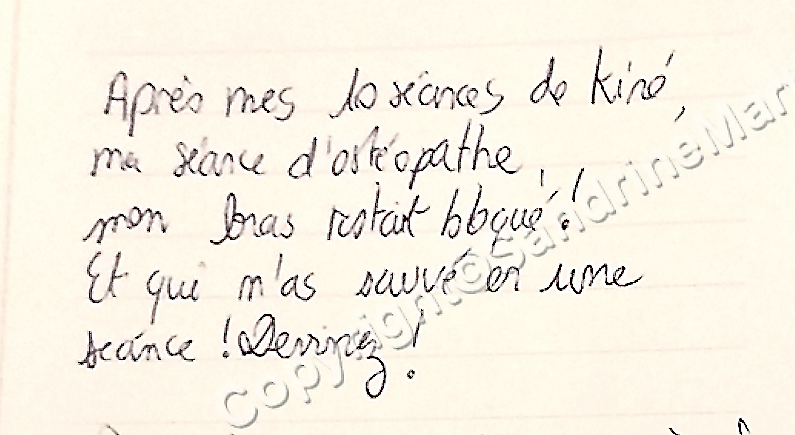 Après mes 10 séances de kiné,
ma séance d'ostéopathe,
mon bras restait bloqué !
Et qui m'as sauvé en une
séance ! Devinez !
Copyright©SandrineMar